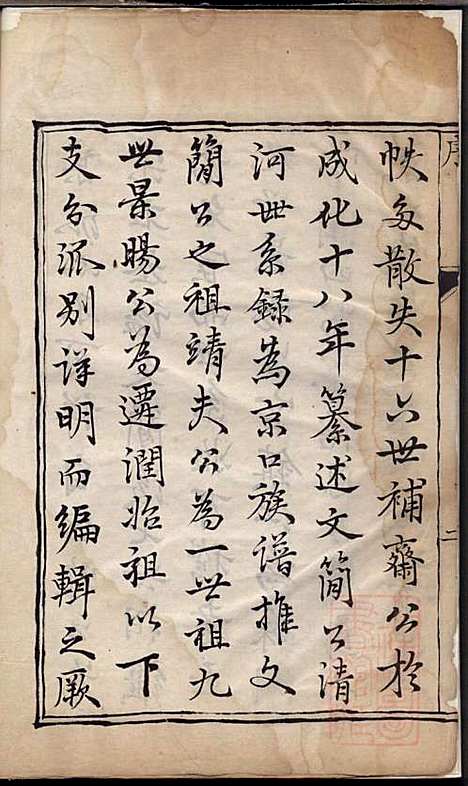 序
二
帙多散失十六世補齋公於
成化十八年纂述文簡公清
河世系錄為京口族譜推文
簡公之祖靖夫公為一世祖九
世景暘公為遷潤始祖以下
支分派别詳明而編輯之厥